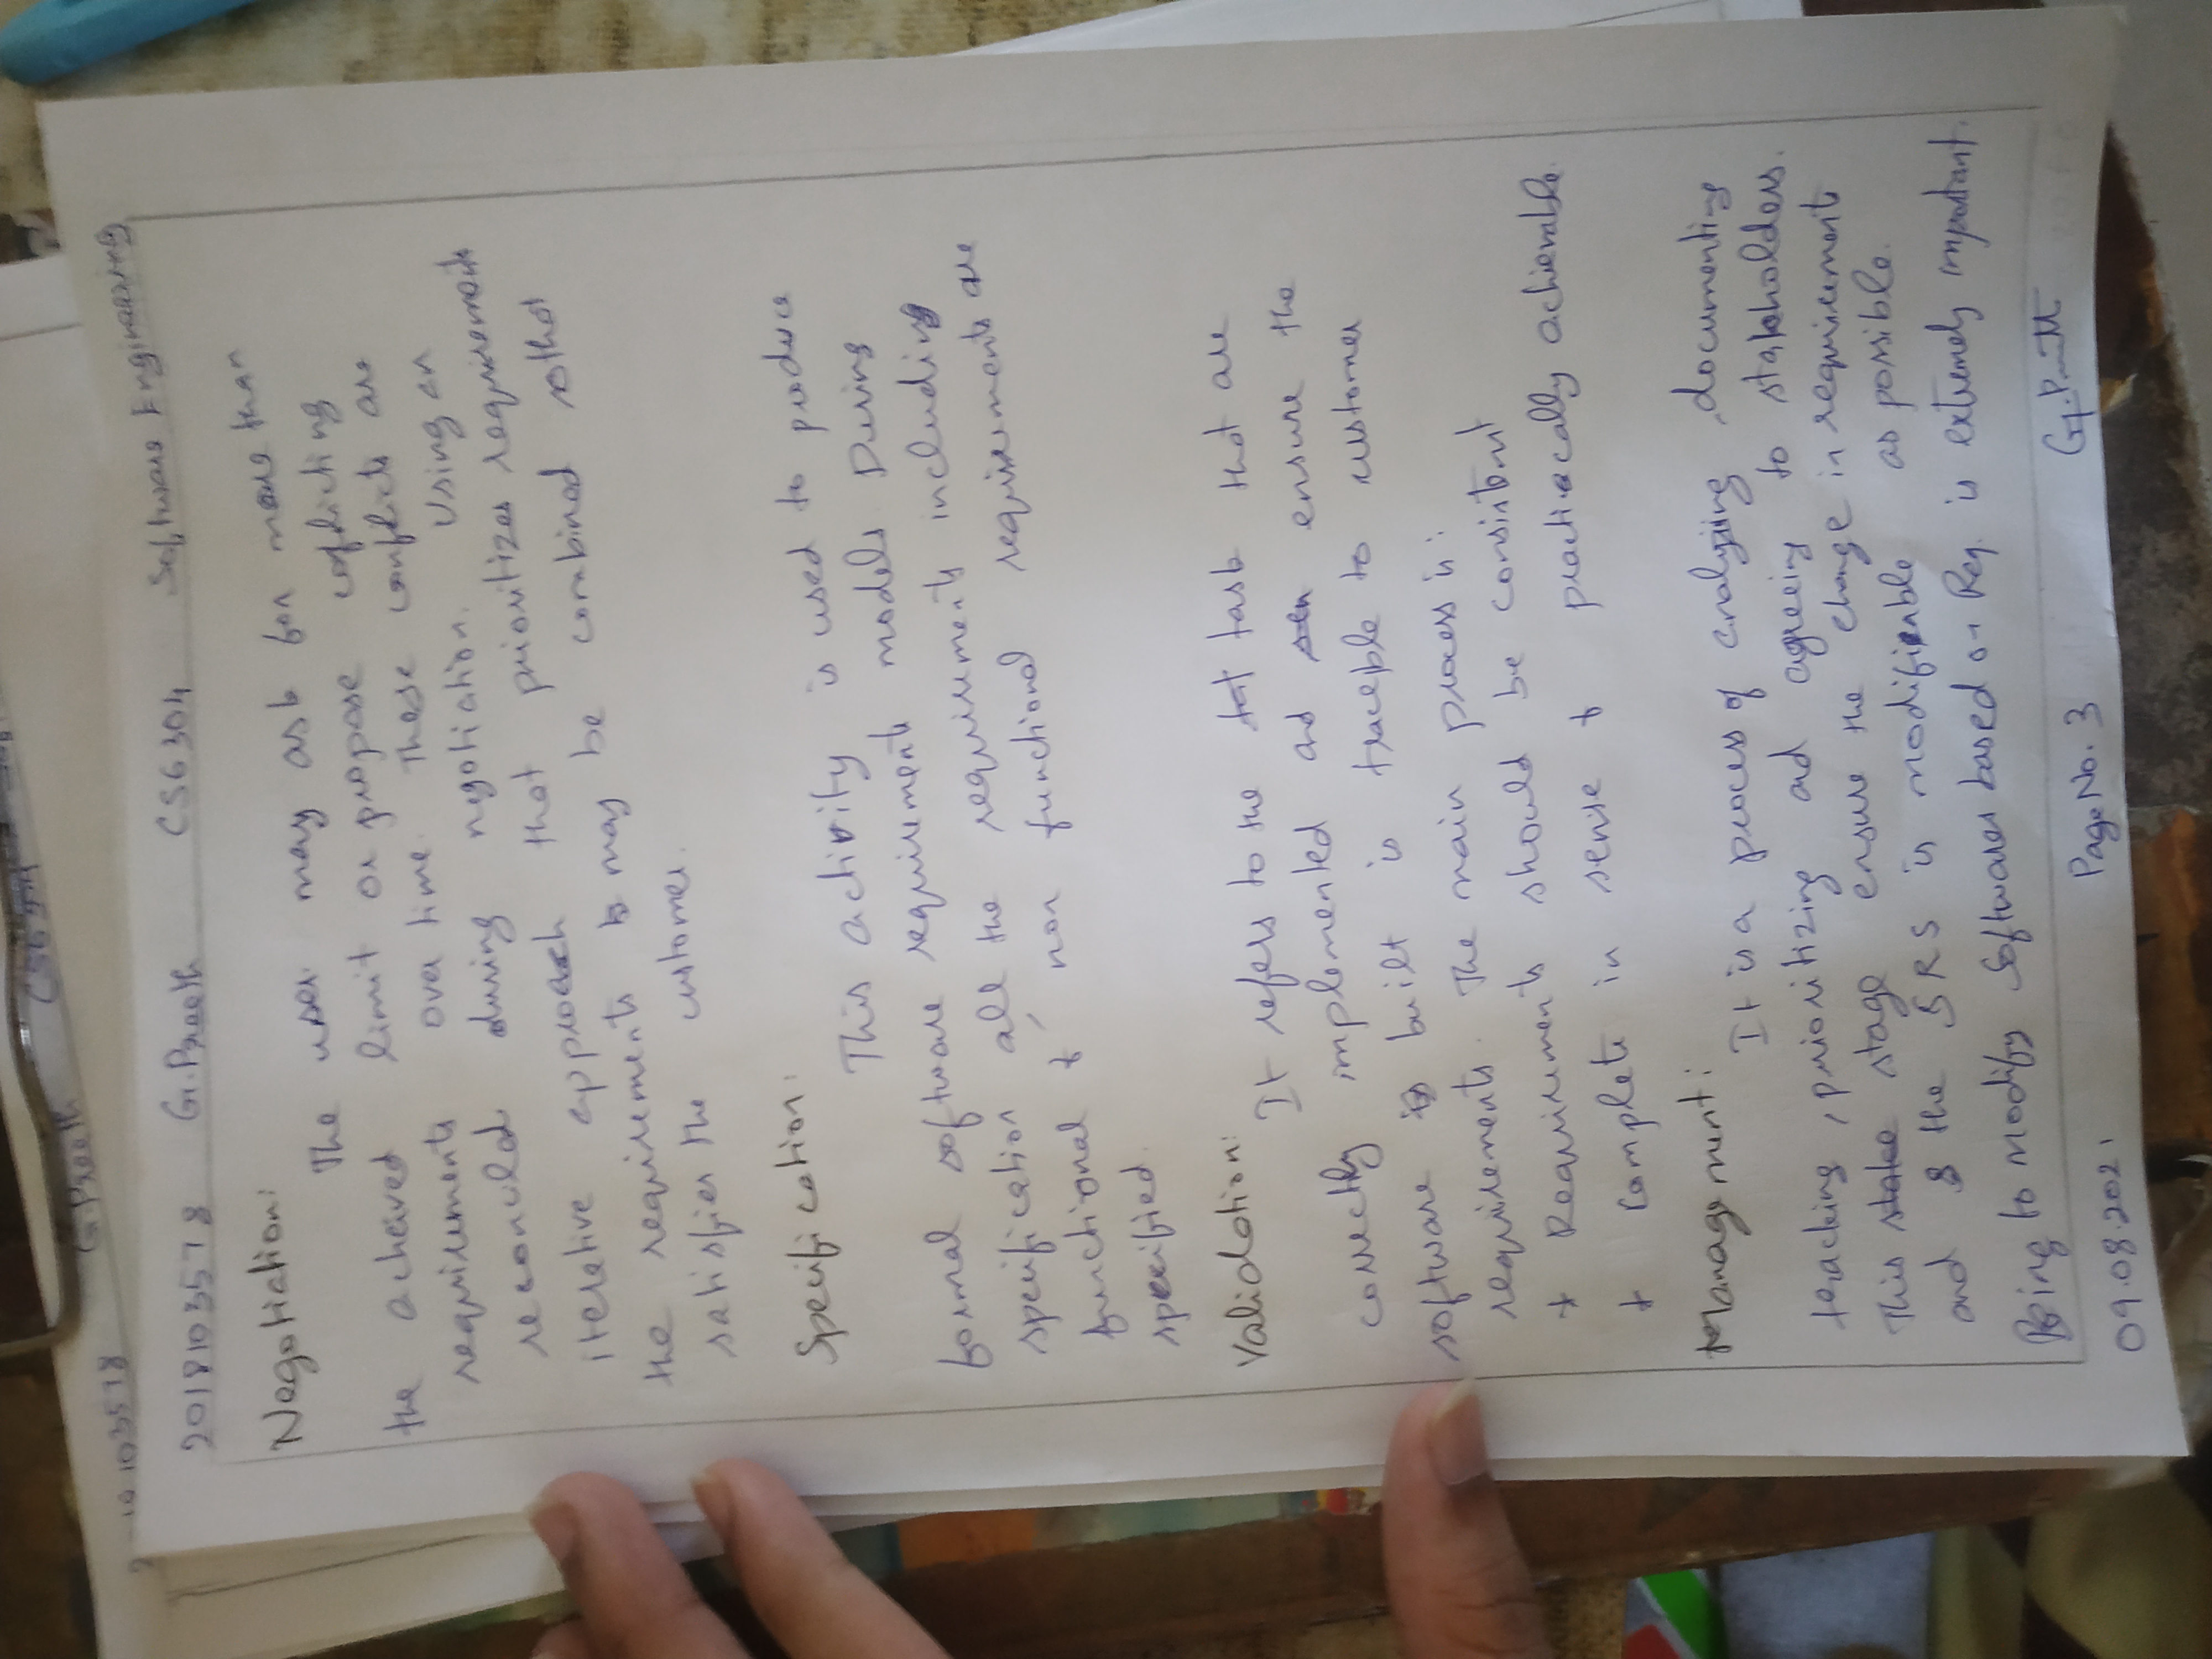 CS6304
G.Preeth
103578
2018103578 G.Preeth CS6304 Software Engineering
Negotiation:
The user may ask for more than
the acheived limit or propose conflicting
requirements over time. These conflicts are
reconciled during negotiation. Using an
iterative approach that prioritizes requirements
the requirements may be combined sothat
satisfies the customer.
Specification:
This activity is used to produce
formal software requirements models. During
specification all the requirements including
functional & non functional requirements are
specified.
Validation:
It refers to the task that are
correctly implemented and ensure the
software built is traceible to customer
requirements. The main process is:
* Requirements should be consistent
* Complete in sense & practically achievable.
Management:
It is a process of analyzing, documenting
tracking, prioritizing and agreeing to stakeholders.
This stage ensure the change in requirements
and the SRS is modifiable as possible.
Being to modify Softwares based on Req. is extremely important.
09.08.2021 Page No. 3 G.Preeth